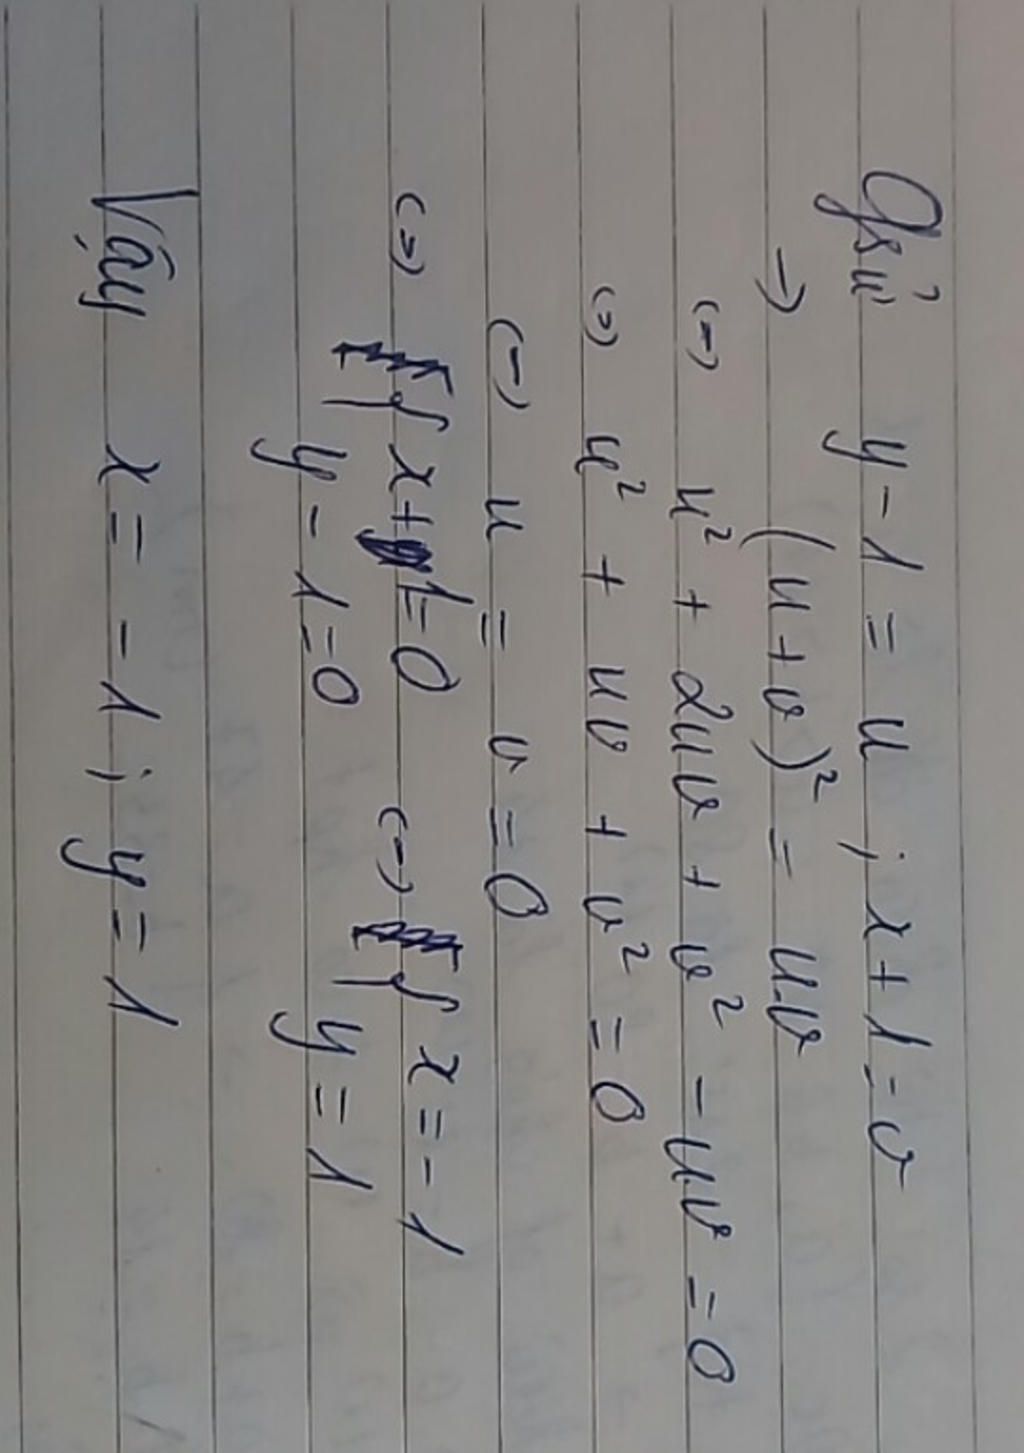 Gsử y - 1 = u ; x + 1 = v
=> (u + v)² = u.v
<=> u² + 2uv + v² - u.v = 0
<=> u² + uv + v² = 0
<=> u = v = 0
<=> { x + 1 = 0 <=> { x = - 1
y - 1 = 0 y = 1
Vậy x = - 1 ; y = 1